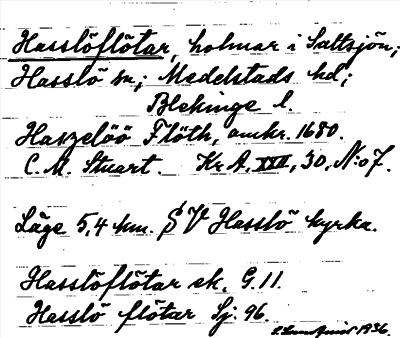 Hasslöflötar, holmar i Saltsjön;
Hasslö sn; Medelstads hd;
Blekinge l.
Haszelöö Flöth, omkr. 1680.
C. M. Stuart. Kr. A. XXII, 30, N:o 7.
Läge 5,4 km. SV Hasslö kyrka.
Hasslöflötar ek. G. 11.
Hasslö flötar Sj. 96.
1936.